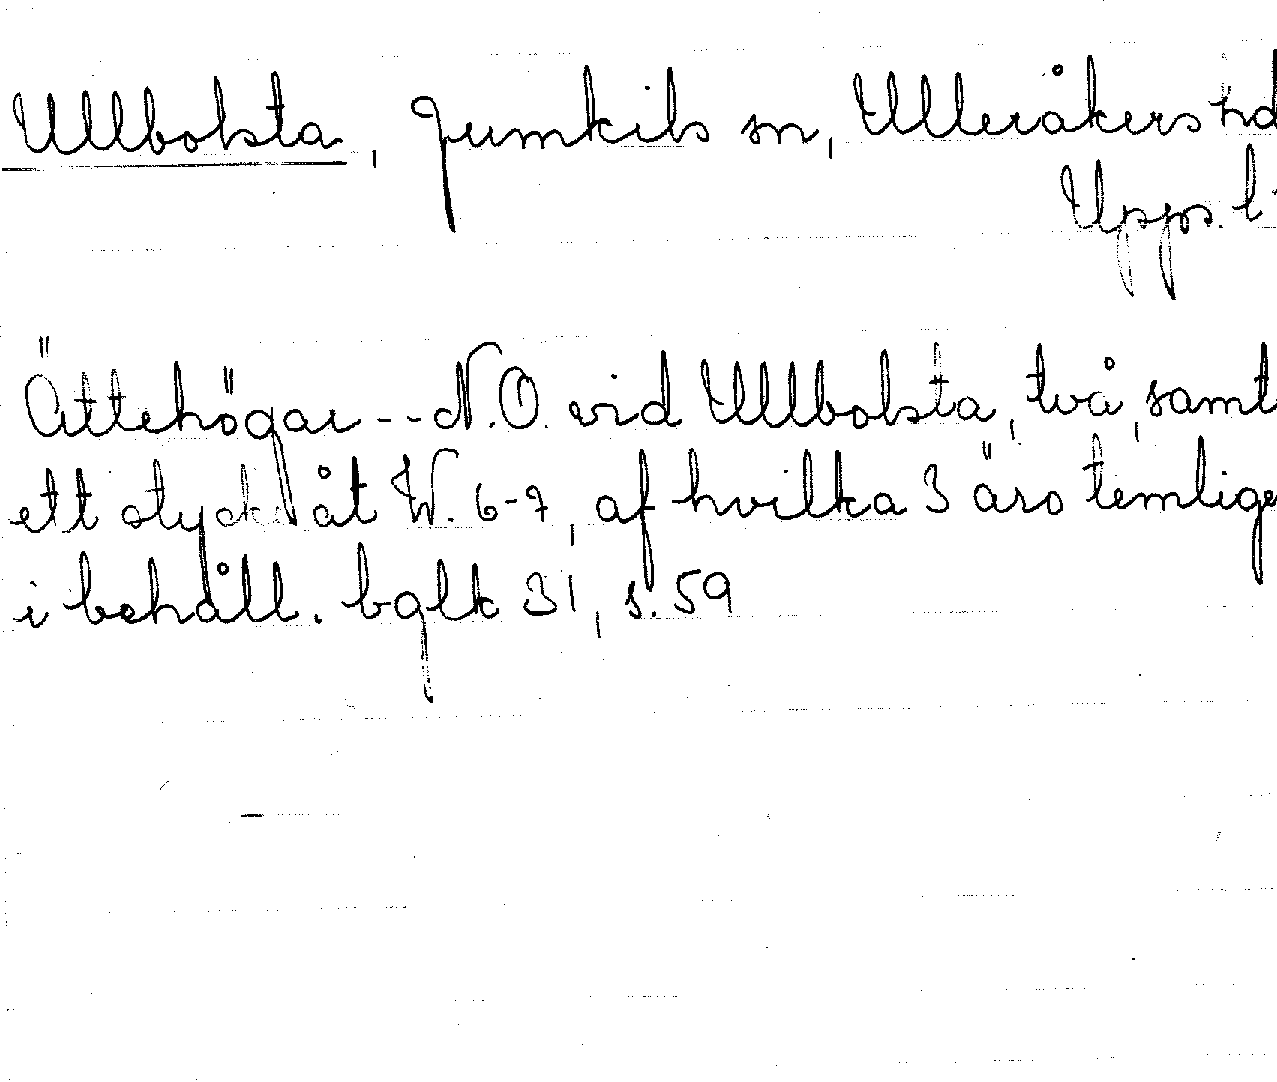 Ullbolsta, Jumkils sn, Ulleråkers hd
Upps. l.
Ättehögar -- N.O. vid Ullbolsta, två, samt
ett stycke åt W. 6-7, af hvilka 3 äro temlige
i behåll. bglk 31, s. 59